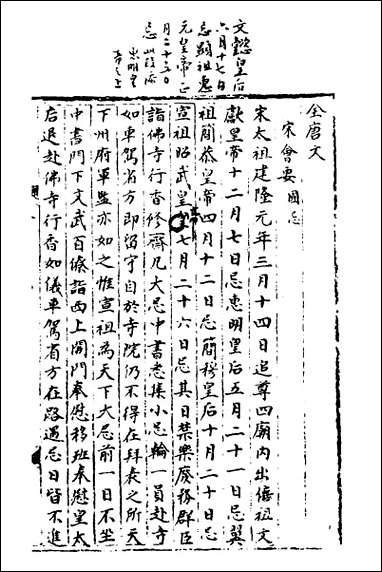 文懿皇后
六月十七日
忌顯祖惠
元皇帝正
月二十三日
忌此段添
忠明皇
后之上
全唐文
宋會要 國忌
宋太祖建隆元年三月十四日追尊四廟內出僖祖文
獻皇帝十二月七日忌惠明皇后五月二十一日忌翼
祖簡恭皇帝四月十二日忌簡穆皇后十月二十日忌
宣祖昭武皇帝七月二十六日忌其日禁樂廢務群臣
詣佛寺行香修齋凡大忌中書悉集小忌輪一員赴寺
如車駕省方即留守自於寺院仍不得在拜表之所天
下州府軍監亦如之惟宣祖為天下大忌前一日不坐
中書門下文武百僚詣西上閤門奉慰移班奉慰皇太
后退赴佛寺行香如儀車駕省方在路遇忌日皆不進